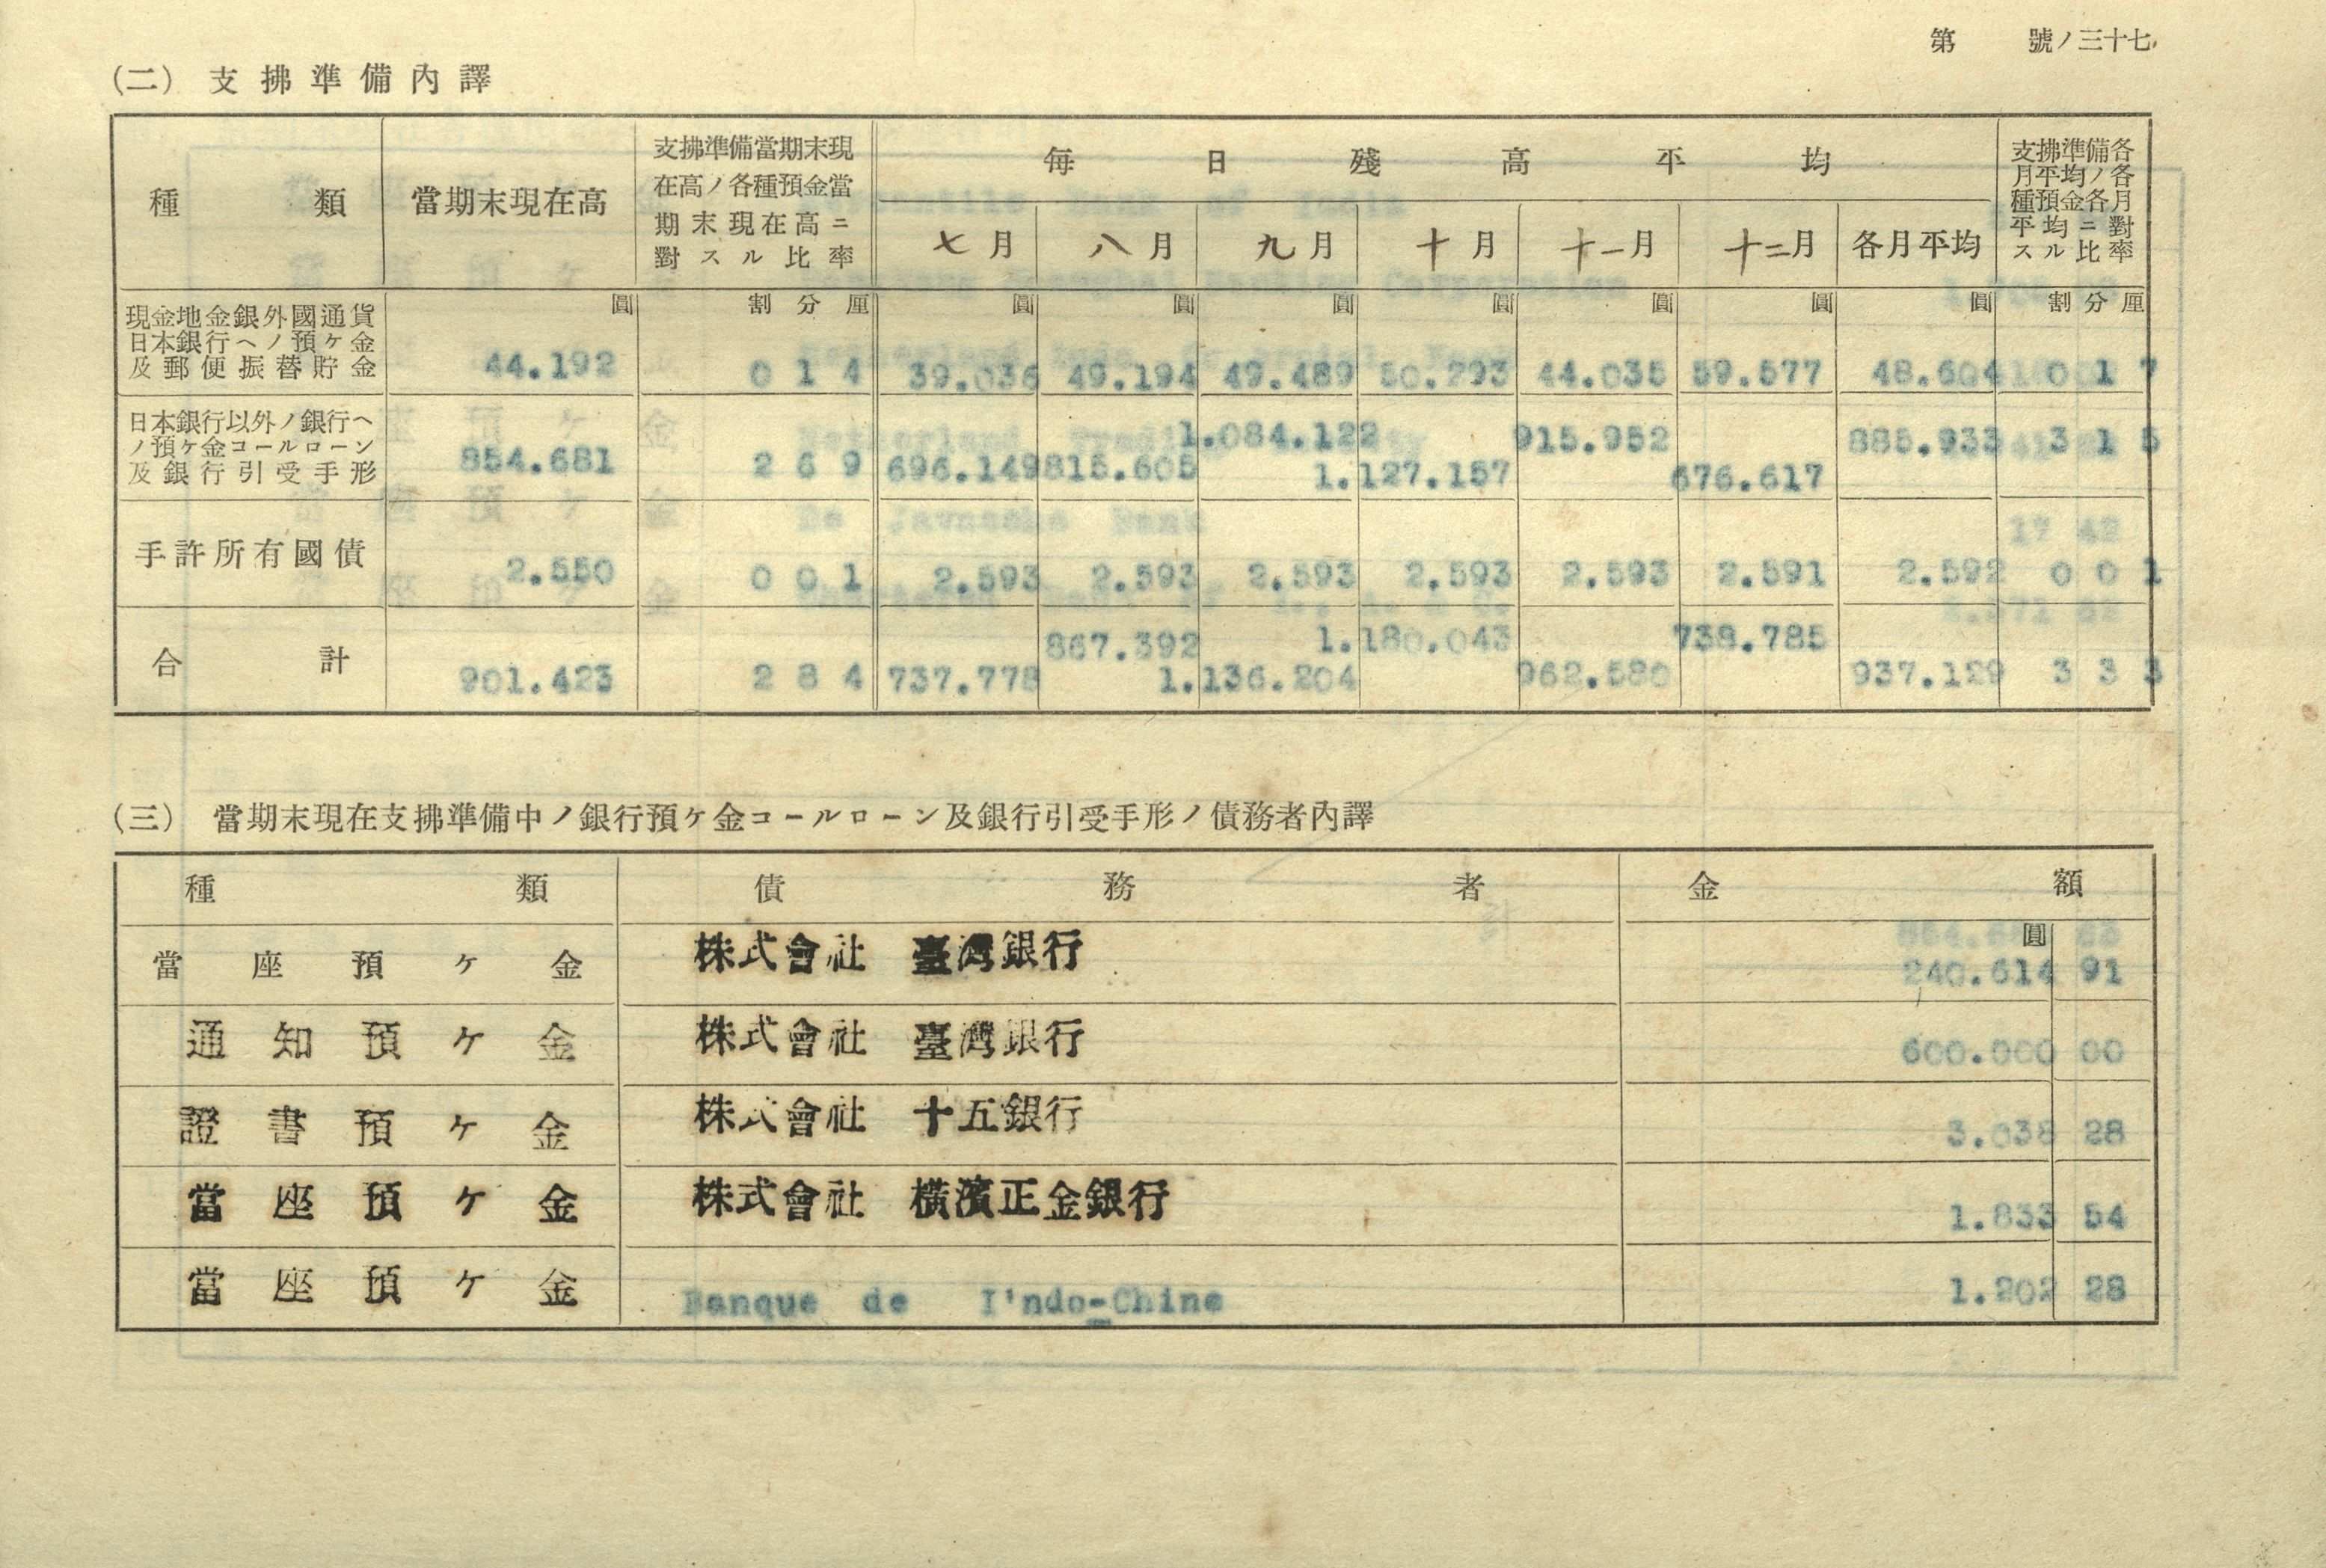 第　號ノ三十七
(二)　支拂準備內譯
種類　當期末現在高　支拂準備當期末現在高ノ各種預金當期末現在高ニ對スル比率　每日殘高平均　支拂準備各月平均ノ各種預金各月平均ニ對スル比率
七月　八月　九月　十月　十一月　十二月　各月平均
圓　割分厘　圓　圓　圓　圓　圓　圓　圓　割分厘
現金地金銀外國通貨
日本銀行ヘノ預ケ金
及郵便振替貯金　44.192　0 1 4　39.036　49.194　49.489　50.293　44.035　59.577　48.604　0 1 7
日本銀行以外ノ銀行ヘ
ノ預ケ金コールローン
及銀行引受手形　854.681　2 6 9　696.149　815.605　1.084.122　1.127.157　915.952　676.617　885.933　3 1 5
手許所有國債　2.550　0 0 1　2.593　2.593　2.593　2.593　2.593　2.591　2.592　0 0 1
合計　901.423　2 8 4　737.778　867.392　1.136.204　1.180.043　962.580　738.785　937.129　3 3 3
(三)　當期末現在支拂準備中ノ銀行預ケ金コールローン及銀行引受手形ノ債務者內譯
種類　債務者　金額
圓
當座預ケ金　株式會社　臺灣銀行　240.614 91
通知預ケ金　株式會社　臺灣銀行　600.000 00
證書預ケ金　株式會社　十五銀行　3.038 28
當座預ケ金　株式會社　橫濱正金銀行　1.833 54
當座預ケ金　Banque de I'ndo-Chine　1.202 28